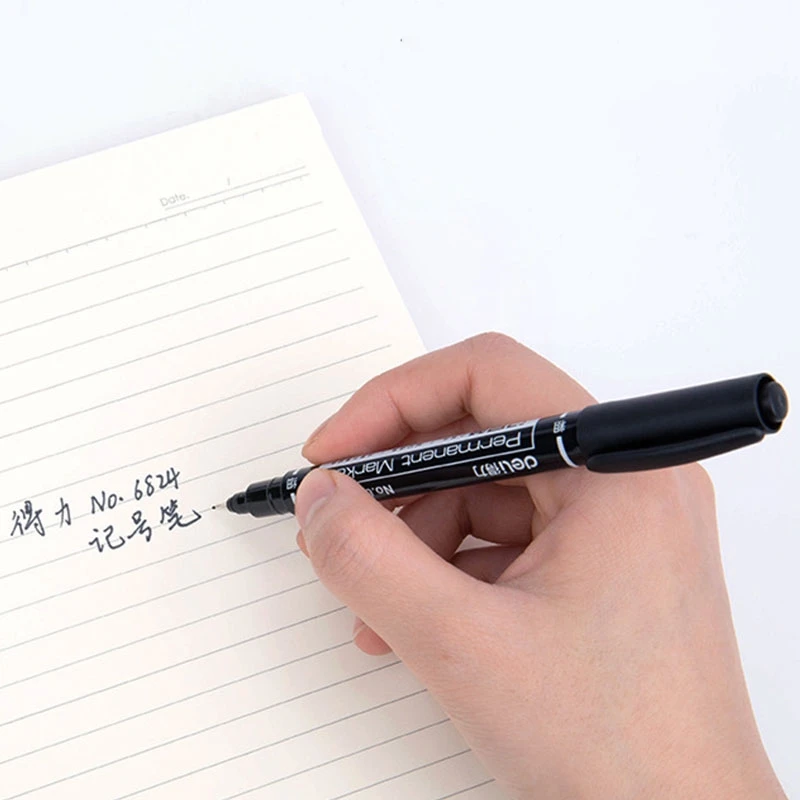 Date. /
得力 No. 6824
记号笔
deli得力
Permanent Marke
No.